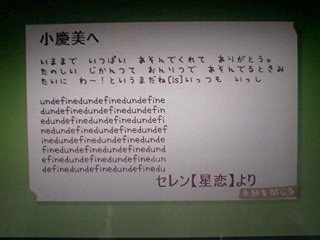 小慶美へ
いままで いっぱい あそんでくれて ありがとう。
たのしい じかんって おんりつで あそんでるときみ
たいに わー！というまだね[is]いっつも いっし
undefinedundefinedundefine
dundefinedundefinedundefin
edundefinedundefinedundefi
nedundefinedundefinedundef
inedundefinedundefinedunde
finedundefinedundefinedund
efinedundefinedundefinedun
definedundefinedundefinedu
セレン【星恋】より
手紙を閉じる